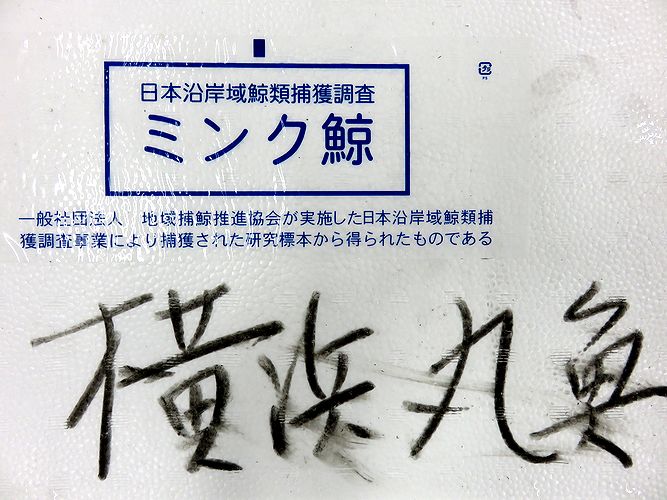 日本沿岸域鯨類捕獲調査
ミンク鯨
一般社団法人　地域捕鯨推進協会が実施した日本沿岸域鯨類捕
獲調査事業により捕獲された研究標本から得られたものである
横浜丸魚